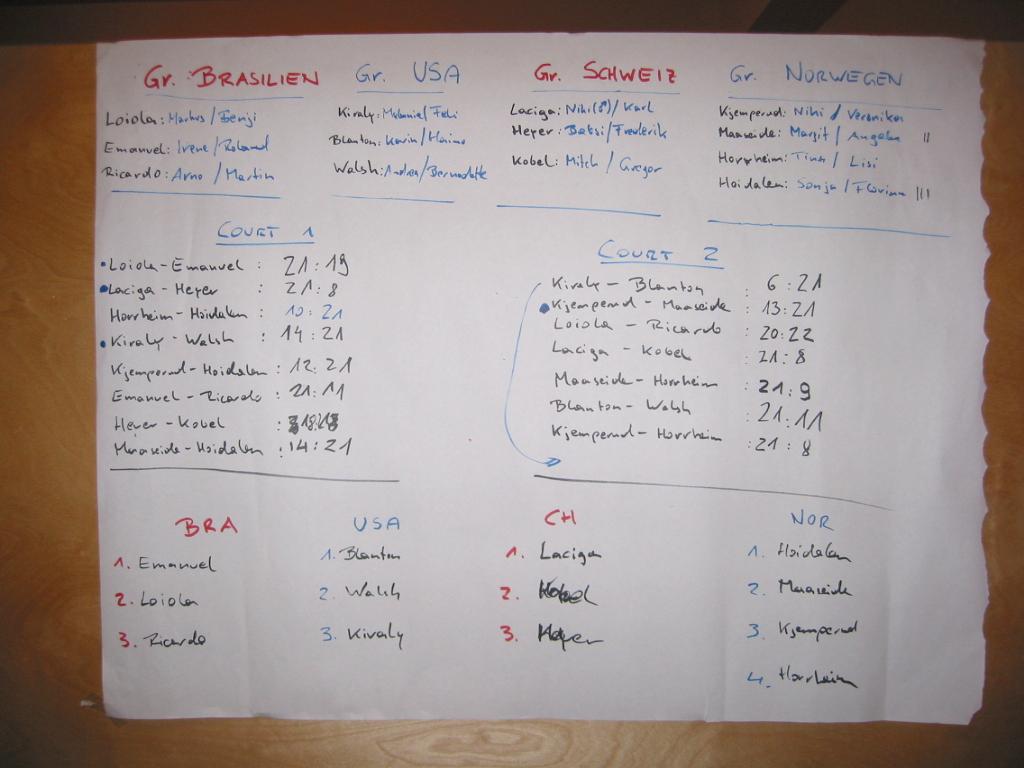 Gr. BRASILIEN
Loiola: Markus/Benji
Emanuel: Irene/Roland
Ricardo: Arno/Martin
Gr. USA
Kiraly: Melanie/Feli
Blanton: Karin/Heimo
Walsh: Andrea/Bernadette
Gr. SCHWEIZ
Laciga: Niki(♂)/Karl
Heyer: Betsi/Frederik
Kobel: Mitch/Gregor
Gr. NORWEGEN
Kjemperud: Niki/Veronika
Maaseide: Margit/Angela II
Horrheim: Tina/Lisi
Hoidalen: Sonja/Florian III
COURT 1
Loiola-Emanuel: 21:19
Laciga-Heyer: 21:8
Horrheim-Hoidalen: 10:21
Kiraly-Walsh: 14:21
Kjemperud-Hoidalen: 12:21
Emanuel-Ricardo: 21:11
Heyer-Kobel:
Maaseide-Hoidalen: 14:21
COURT 2
Kiraly-Blanton: 6:21
Kjemperud-Maaseide: 13:21
Loiola-Ricardo: 20:22
Laciga-Kobel: 21:8
Maaseide-Horrheim: 21:9
Blanton-Walsh: 21:11
Kjemperud-Horrheim: 21:8
BRA
1. Emanuel
2. Loiola
3. Ricardo
USA
1. Blanton
2. Walsh
3. Kiraly
CH
1. Laciga
2. Kobel
3. Heyer
NOR
1. Hoidalen
2. Maaseide
3. Kjemperud
4. Horrheim